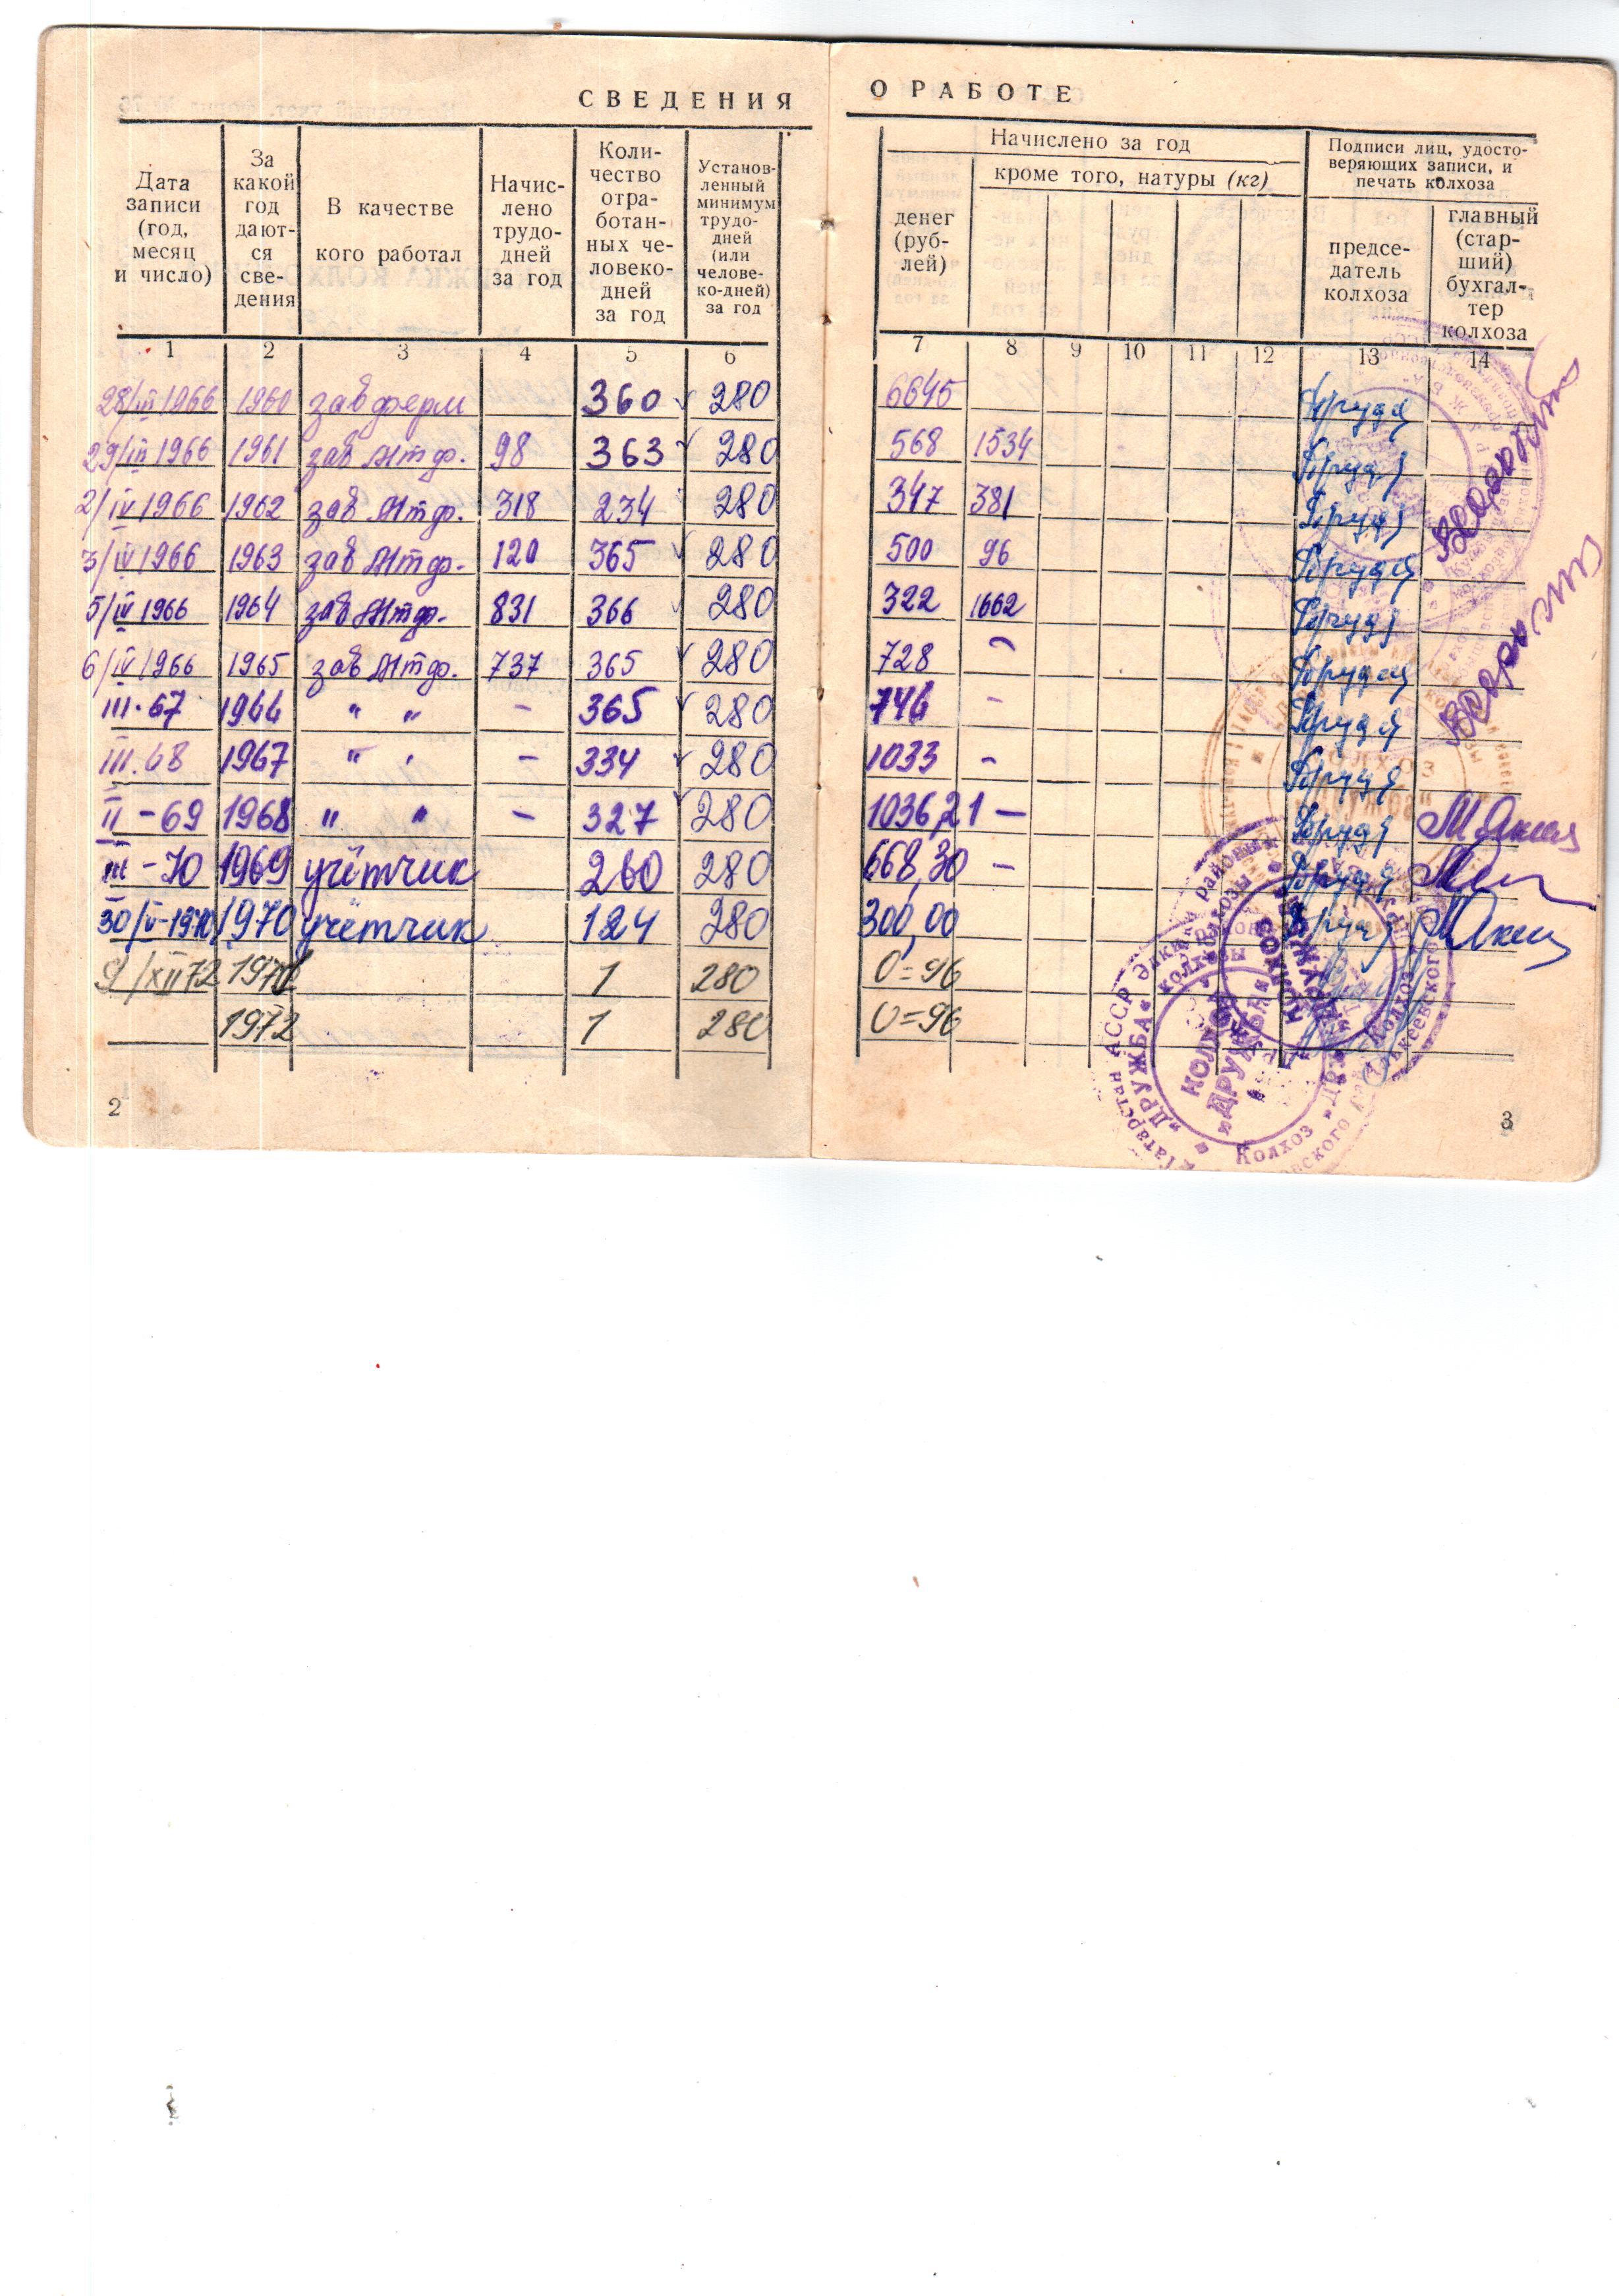 СВЕДЕНИЯ О РАБОТЕ
Дата записи (год, месяц и число)
За какой год дают-ся све-дения
В качестве кого работал
Начис-лено трудо-дней за год
Коли-чество отра-ботан-ных че-ловеко-дней за год
Установ-ленный минимум трудо-дней (или челове-ко-дней) за год
Начислено за год
денег (руб-лей)
кроме того, натуры (кг)
Подписи лиц, удосто-веряющих записи, и печать колхоза
предсе-датель колхоза
главный (стар-ший) бухгал-тер колхоза
1 2 3 4 5 6 7 8 9 10 11 12 13 14
28/III 1966 1960 зав ферм 360 280 6645
29/III 1966 1961 зав Мтф. 98 363 280 568 1534
2/IV 1966 1962 зав Мтф. 318 234 280 347 381
3/IV 1966 1963 зав Мтф. 120 365 280 500 96
5/IV 1966 1964 зав Мтф. 831 366 280 322 1662
6/IV 1966 1965 зав Мтф. 737 365 280 728 -
III-67 1966 " " - 365 280 746 -
III.68 1967 " " - 334 280 1033 -
II-69 1968 " " - 327 280 1036,21 -
III-70 1969 учётчик 260 280 668,30 -
30/IV-1970 1970 учётчик 124 280 300,00
9/XII 72 1971 1 280 0=96
1972 1 280 0=96
КОЛХОЗ
"ДРУЖБА"
2
3